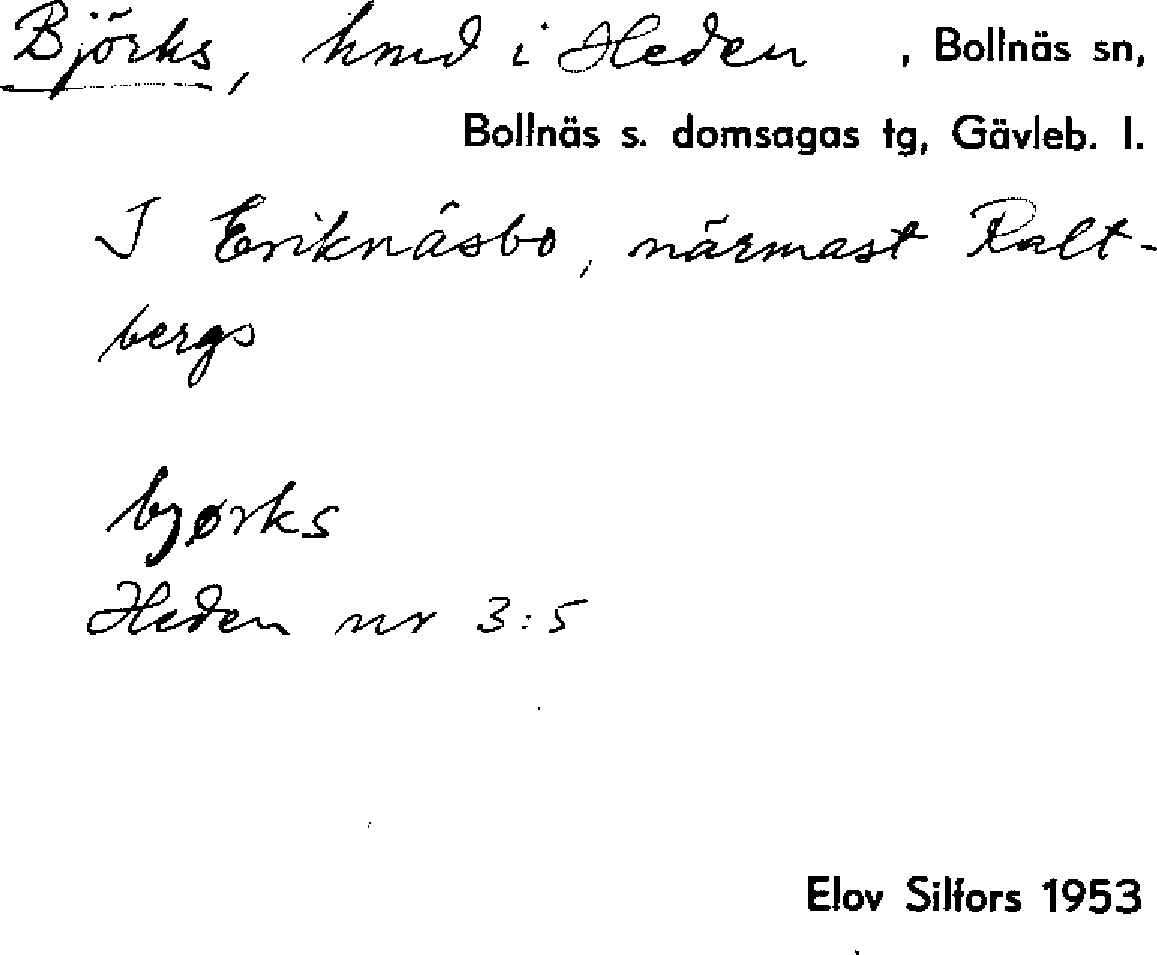 Björks, hmd i Heden , Bollnäs sn,
Bollnäs s. domsagas tg, Gävleb. l.
I Eriknäsbo, närmast Ralt-
bergs
bjørks
Heden nr 3:5
Elov Silfors 1953